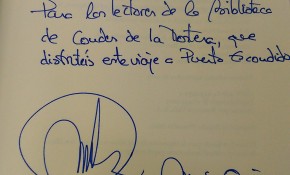 Para los lectores de la Biblioteca
de Condes de la Tortera, que
disfrutéis este viaje a Puerto Escondido